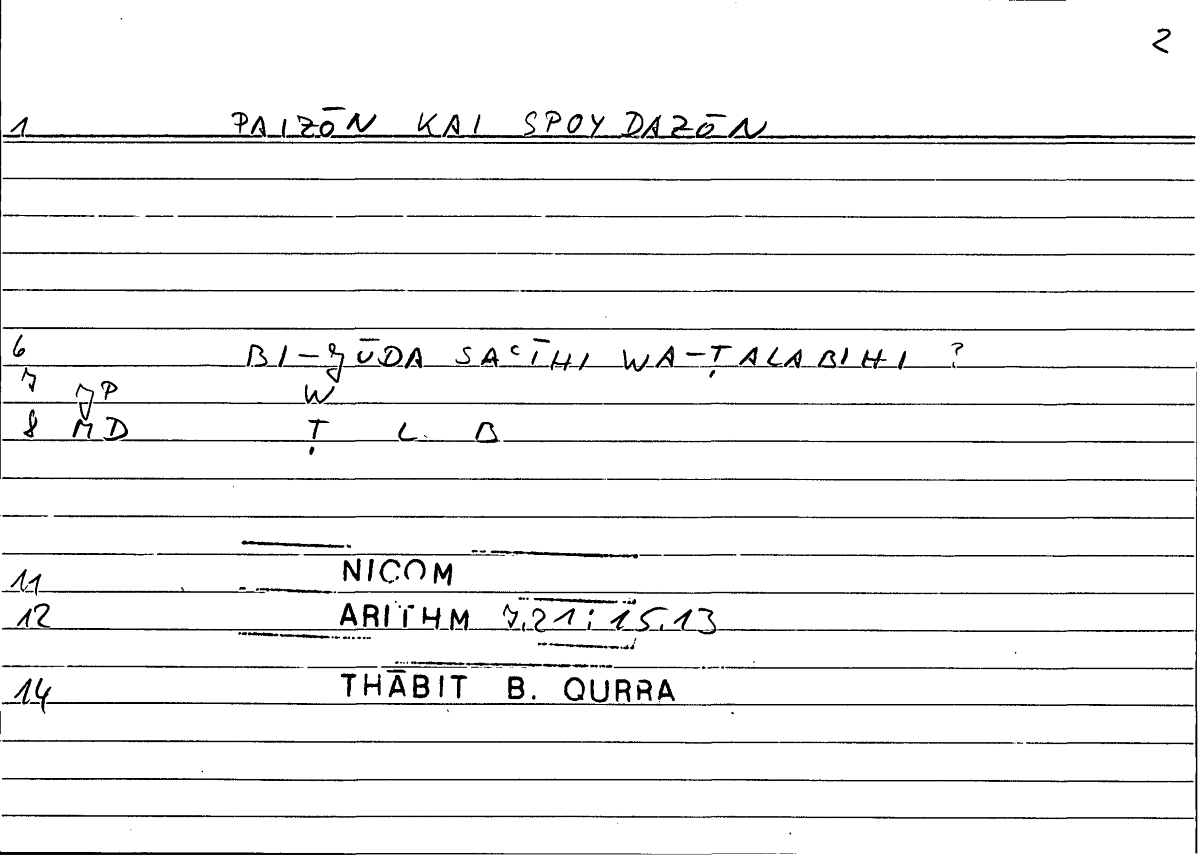 2
1 PAIZŌN KAI SPOYDAZŌN
6 BI-ǦŪDA SAʿĪHI WA-ṬALABIHI ?
7 JP W
8 MD Ṭ L B
11 NICOM
12 ARITHM 7.21 : 15.13
14 THĀBIT B. QURRA